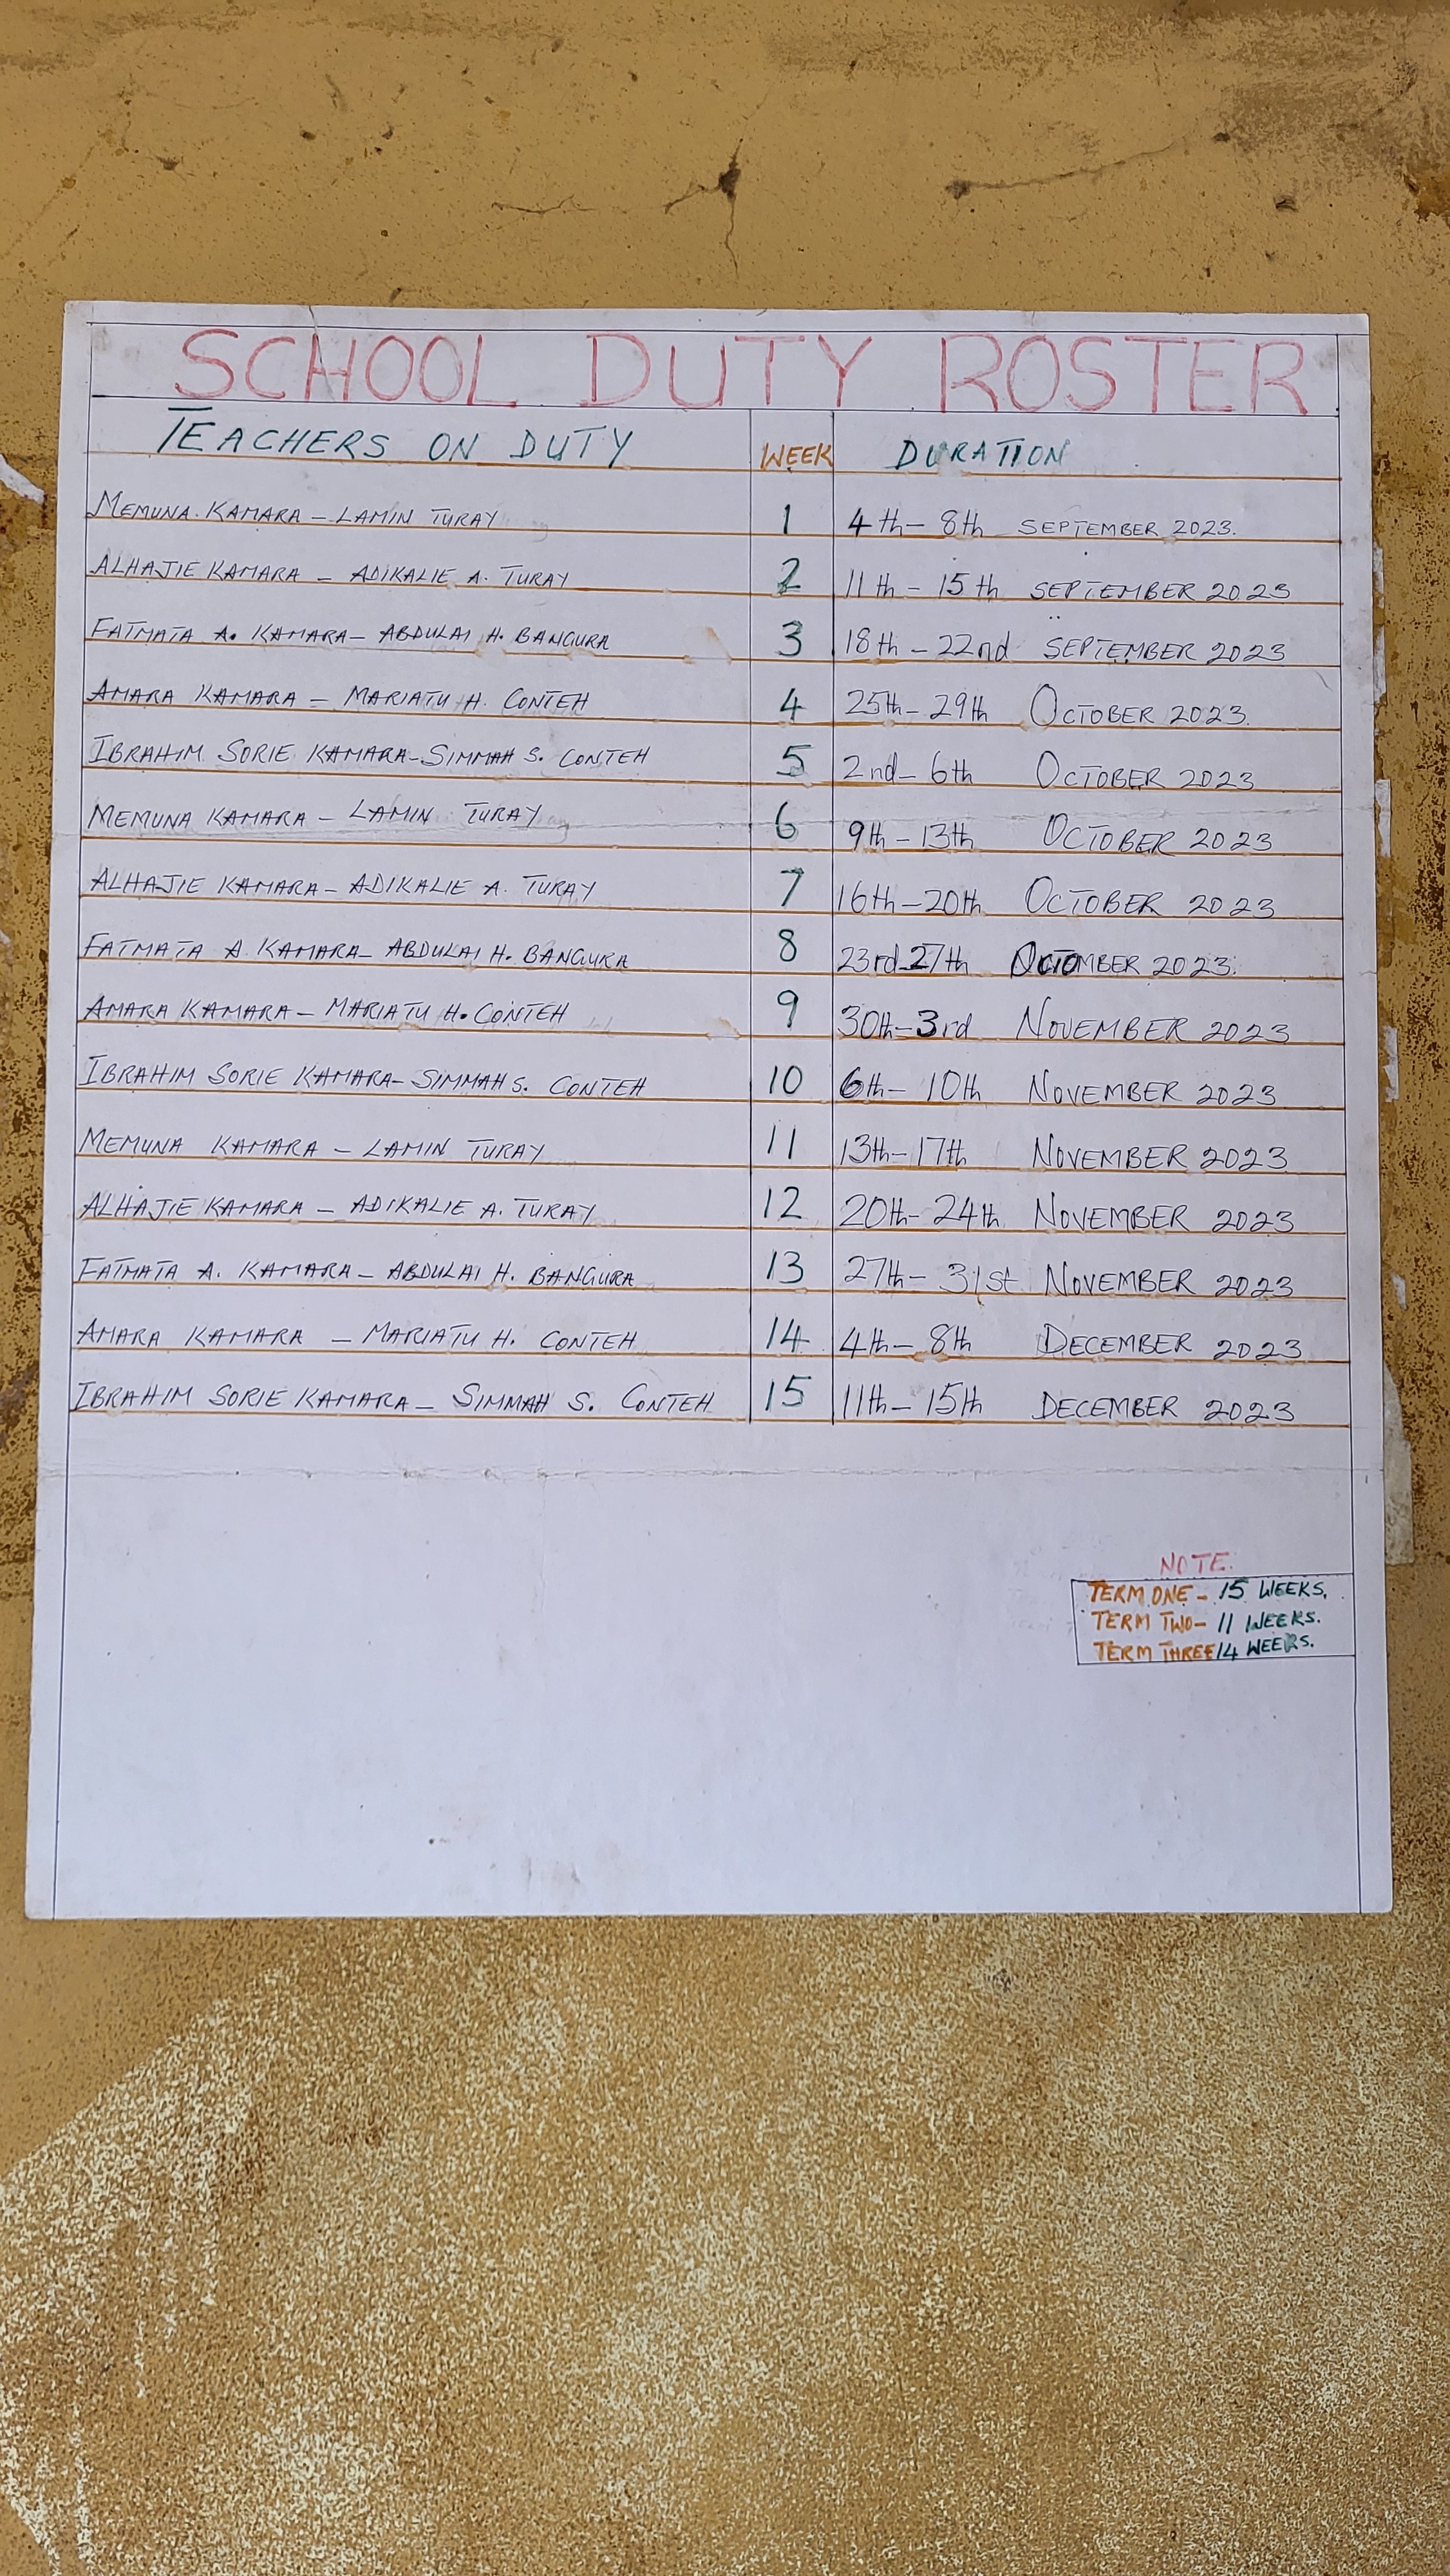 SCHOOL DUTY ROSTER
TEACHERS ON DUTY WEEK DURATION
MEMUNA KAMARA - LAMIN TURAY 1 4th - 8th SEPTEMBER 2023.
ALHAJIE KAMARA - ADIKALIE A. TURAY 2 11th - 15th SEPTEMBER 2023
FATMATA A. KAMARA - ABDULAI H. BANGURA 3 18th - 22nd SEPTEMBER 2023
AMARA KAMARA - MARIATU H. CONTEH 4 25th - 29th OCTOBER 2023.
IBRAHIM SORIE KAMARA - SIMMAH S. CONTEH 5 2nd - 6th OCTOBER 2023
MEMUNA KAMARA - LAMIN TURAY 6 9th - 13th OCTOBER 2023
ALHAJIE KAMARA - ADIKALIE A. TURAY 7 16th - 20th OCTOBER 2023
FATMATA A. KAMARA - ABDULAI H. BANGURA 8 23rd - 27th 2023.
AMARA KAMARA - MARIATU H. CONTEH 9 30th - 3rd NOVEMBER 2023
IBRAHIM SORIE KAMARA - SIMMAH S. CONTEH 10 6th - 10th NOVEMBER 2023
MEMUNA KAMARA - LAMIN TURAY 11 13th - 17th NOVEMBER 2023
ALHAJIE KAMARA - ADIKALIE A. TURAY 12 20th - 24th NOVEMBER 2023
FATMATA A. KAMARA - ABDULAI H. BANGURA 13 27th - 31st NOVEMBER 2023
AMARA KAMARA - MARIATU H. CONTEH 14 4th - 8th DECEMBER 2023
IBRAHIM SORIE KAMARA - SIMMAH S. CONTEH 15 11th - 15th DECEMBER 2023
NOTE:
TERM ONE - 15 WEEKS.
TERM TWO - 11 WEEKS.
TERM THREE 14 WEEKS.